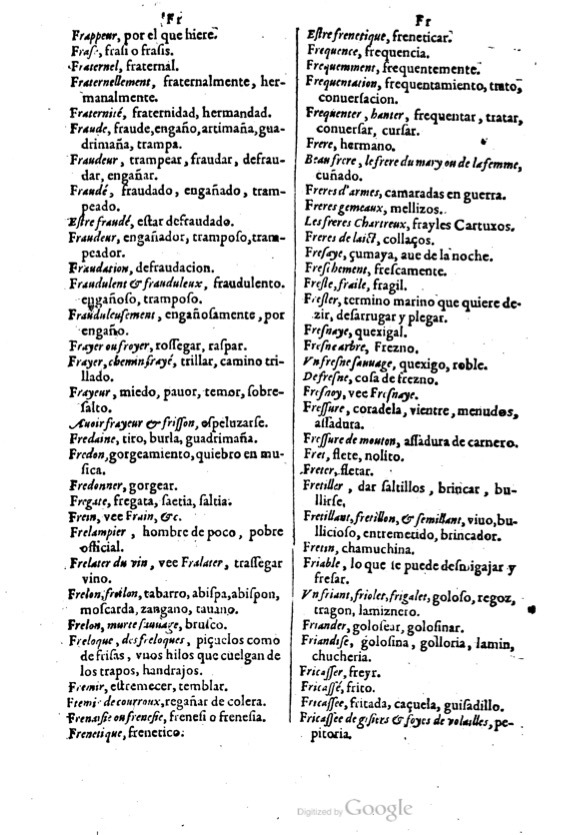 Fr
Frappeur, por el que hiere.
Fraſ, fraſi o fraſis.
Fraternel, fraternal.
Fraternellement, fraternalmente, her-
manalmente.
Fraternité, fraternidad, hermandad.
Fraude, fraude, engaño, artimaña, gua-
drimaña, trampa.
Fraudeur, trampear, fraudar, defrau-
dar, engañar.
Fraudé, fraudado, engañado, tram-
peado.
Eſtre fraudé, eſtar defraudado.
Fraudeur, engañador, trampoſo, tram-
peador.
Fraudation, defraudacion.
Fraudulent & frauduleux, fraudulento.
engañoſo, trampoſo.
Frauduleuſement, engañoſamente, por
engaño.
Frayer ou froyer, roſſegar, raſpar.
Frayer, chemin frayé, trillar, camino tri-
llado.
Frayeur, miedo, pauor, temor, ſobre-
ſalto.
Auoir frayeur & friſſon, oſpeluzarſe.
Fredaine, tiro, burla, guadrimaña.
Fredon, gorgeamiento, quiebro en mu-
ſica.
Fredonner, gorgear.
Fregate, fregata, ſaetia, ſaltia.
Frein, vee Frain, &c.
Frelampier, hombre de poco, pobre
official.
Frelater du vin, vee Fralater, traſſegar
vino.
Frelon, froilon, tabarro, abiſpa, abiſpon,
moſcarda, zangano, tauano.
Frelon, murte ſauuage, bruſco.
Freloque, desfreloques, piçuelos como
de friſas, vnos hilos que cuelgan de
los trapos, handrajos.
Fremir, eſtremecer, temblar.
Fremir de courroux, regañar de colera.
Frenaiſie ou freneſie, freneſi o freneſia.
Frenetique, frenetico.
Fr
Eſtre frenetique, freneticar.
Frequence, frequencia.
Frequemment, frequentemente.
Frequentation, frequentamiento, trato,
conuerſacion.
Frequenter, hanter, frequentar, tratar,
conuerſar, curſar.
Frere, hermano.
Beau frere, le frere du mary ou de la femme,
cuñado.
Freres d'armes, camaradas en guerra.
Freres gemeaux, mellizos.
Les freres Chartreux, frayles Cartuxos.
Freres de laict, collaços.
Freſaye, çumaya, aue de la noche.
Freſchement, freſcamente.
Freſle, fraile, fragil.
Freſler, termino marino que quiere de-
zir, deſarrugar y plegar.
Freſnaye, quexigal.
Freſne arbre, Frezno.
Vn freſne ſauuage, quexigo, roble.
De freſne, coſa de frezno.
Freſnoy, vee Freſnaye.
Freſſure, coradela, vientre, menudos,
aſſadura.
Freſſure de mouton, aſſadura de carnero.
Fret, flete, nolito.
Freter, fletar.
Fretiller, dar ſaltillos, brincar, bu-
llirſe.
Fretillant, fretillon, & ſemillant, viuo, bu-
llicioſo, entremetido, brincador.
Fretin, chamuchina.
Friable, lo que ſe puede deſmigajar y
freſar.
Vn friant, friolet, frigalet, goloſo, regoz,
tragon, lamiznero.
Friander, goloſear, goloſinar.
Friandiſe, goloſina, golloria, lamin,
chucheria.
Fricaſſer, freyr.
Fricaſſé, frito.
Fricaſſee, fritada, caçuela, guiſadillo.
Fricaſſee de giſiers & foyes de volailles, pe-
pitoria.
Digitized by Google